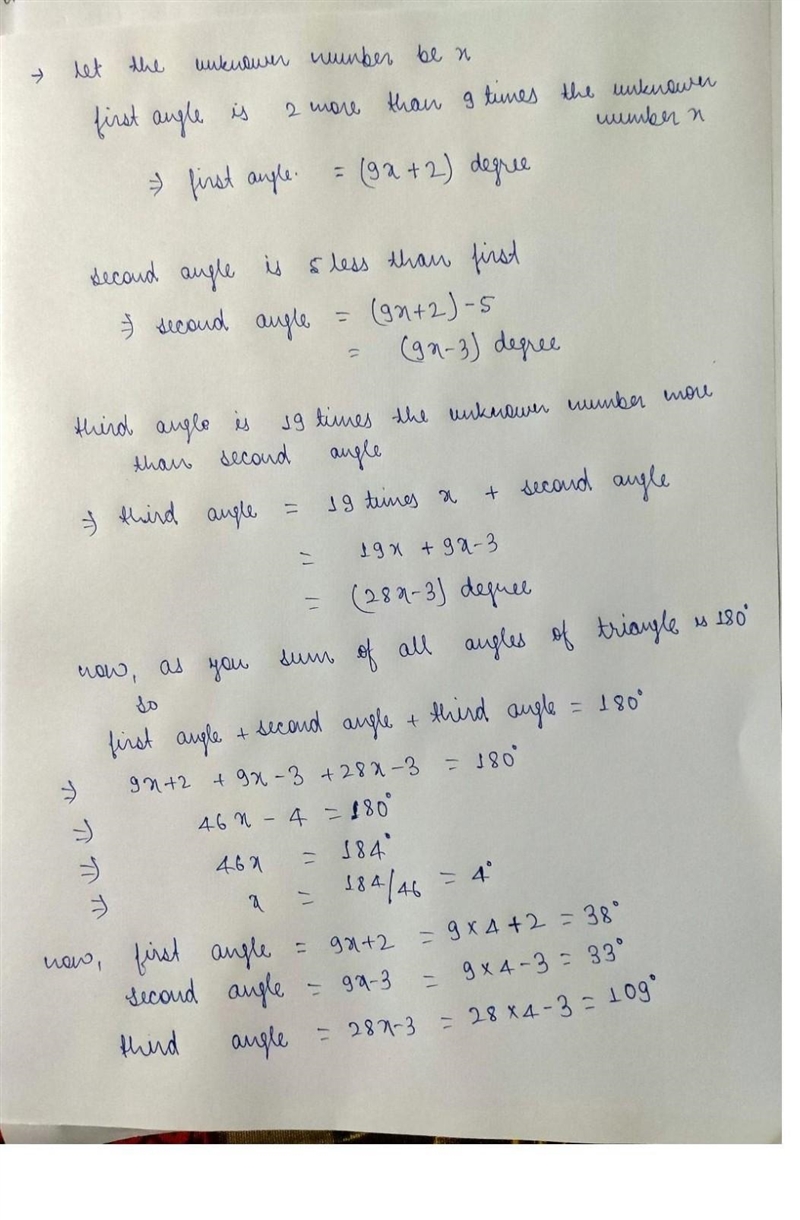 → Let the unknown number be x
first angle is 2 more than 9 times the unknown
number x
⇒ first angle. = (9x+2) degree
second angle is 5 less than first
⇒ second angle = (9x+2)-5
= (9x-3) degree
third angle is 19 times the unknown number more
than second angle
⇒ third angle = 19 times x + second angle
= 19x + 9x-3
= (28x-3) degree
now, as you sum of all angles of triangle is 180°
so
first angle + second angle + third angle = 180°
⇒ 9x+2 + 9x-3 +28x-3 = 180°
⇒ 46x - 4 = 180°
⇒ 46x = 184°
⇒ x = 184/46 = 4°
now, first angle = 9x+2 = 9×4+2 = 38°
second angle = 9x-3 = 9×4-3 = 33°
third angle = 28x-3 = 28×4-3 = 109°